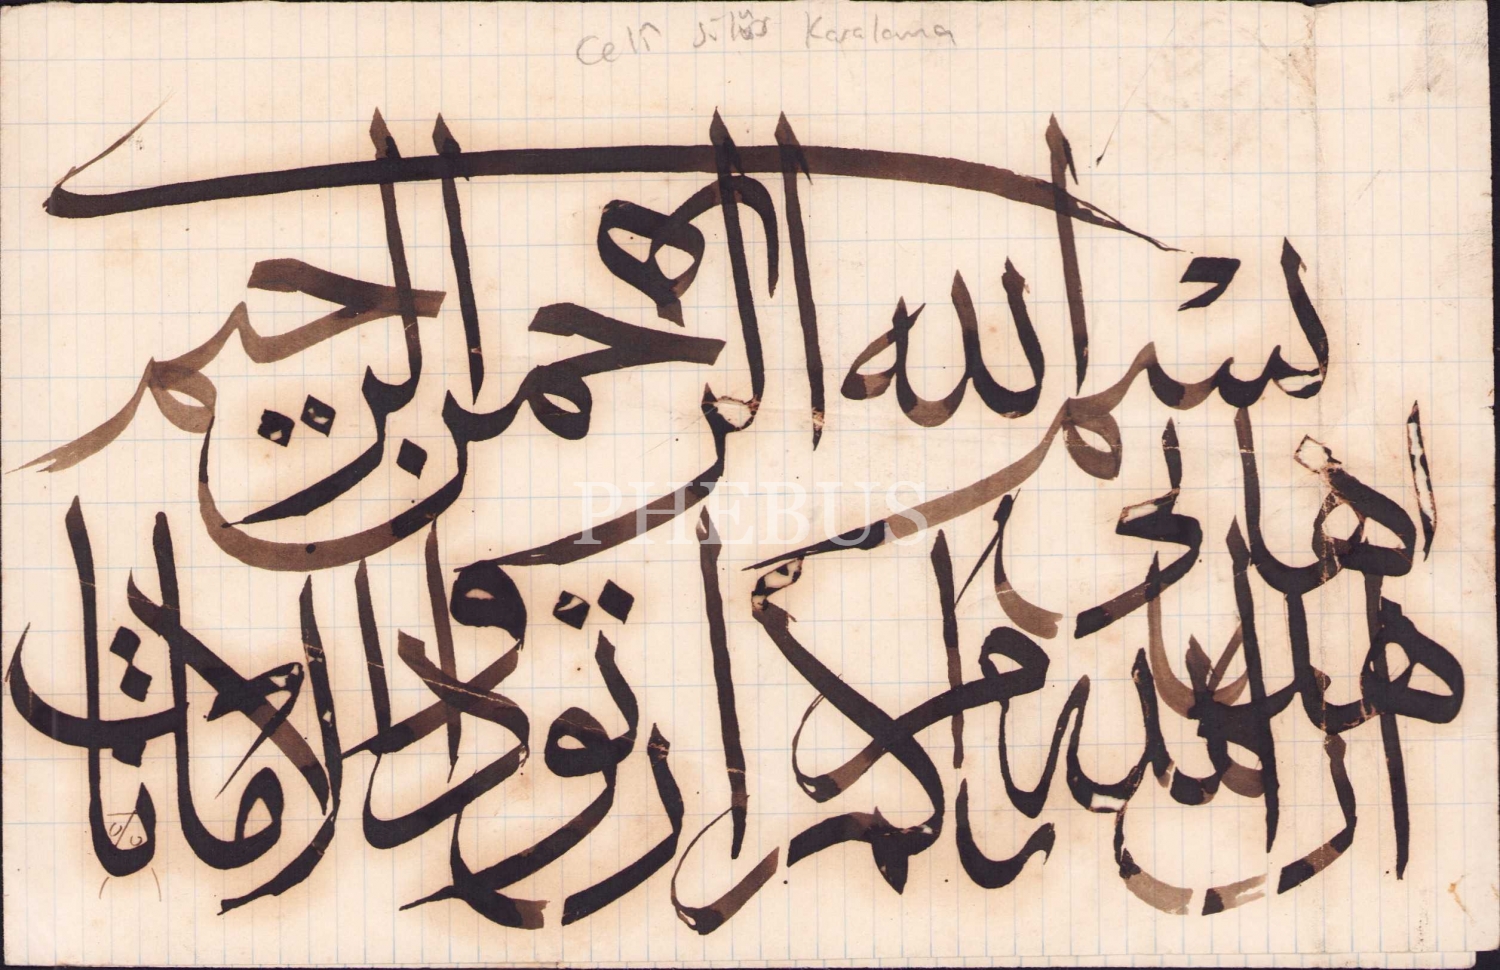 Celî Sülüs Karalama
بسم الله الرحمن الرحيم
ان الله يامركم ان تودوا الامانات الى اهلها
PHEBUS